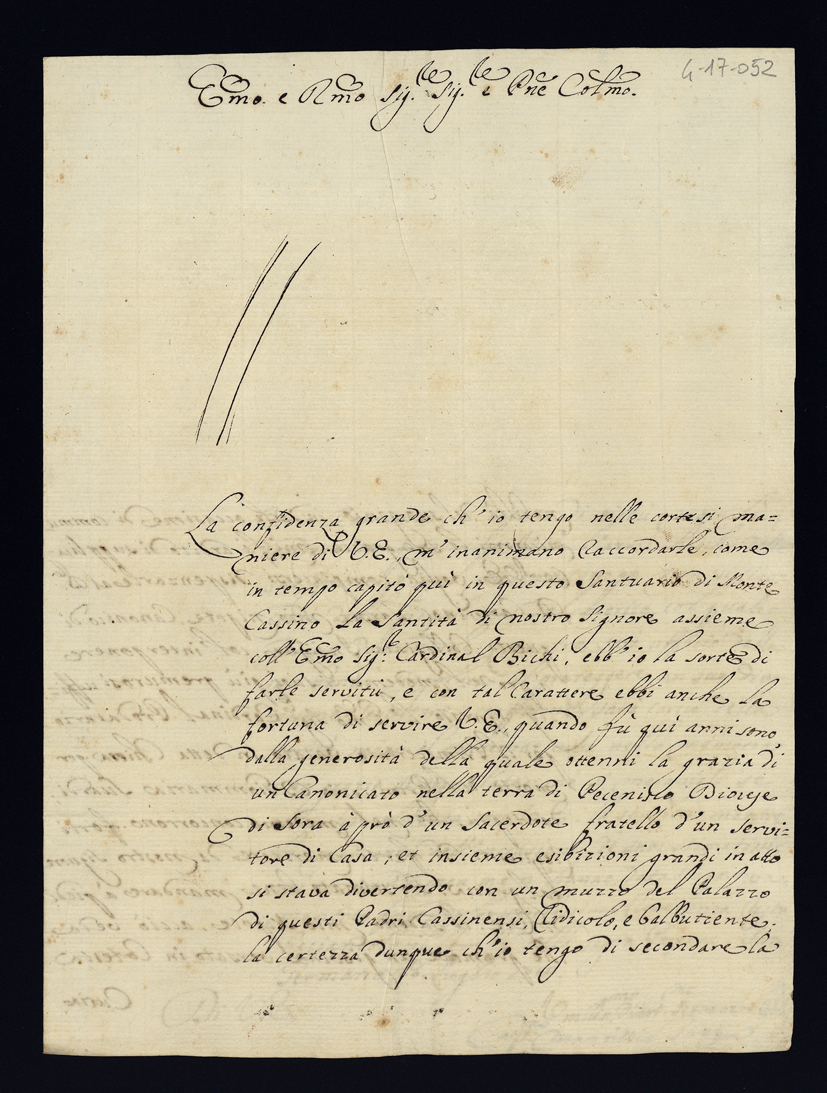 4-17-052
Emo. e Rmo Sig.re Sig.re e Pne Colmo.
La confidenza grande ch'io tengo nelle cortesi ma=
niere di V.E., m'inanimano raccordarle, come
in tempo capitò quì in questo Santuario di Monte
Cassino La Santità di nostro Signore assieme
coll'Emo Sig.r Cardinal Bichi, ebb'io la sorte di
farle servitù, e con tal Carattere ebbi anche la
fortuna di servire V.E., quando fù quì anni sono
dalla generosità della quale ottenni la grazia di
un Canonicato nella terra di Diocese
di Sora à prò d'un Sacerdote fratello d'un servi=
tore di Casa, et insieme esibizioni grandi in atto
si stava divertendo con un muzzo del Palazzo
di questi Padri Cassinensi, Ridicolo, e balbutiente,
la certezza dunque ch'io tengo di secondare la